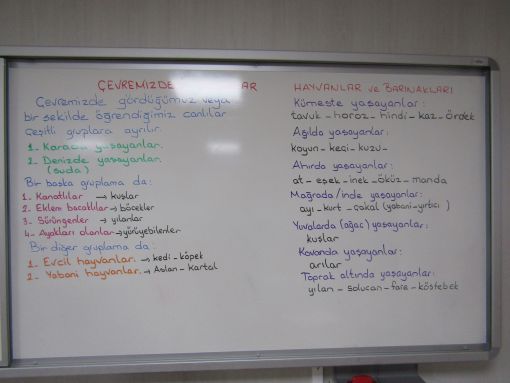 ÇEVREMİZDE
Çevremizde gördüğümüz veya
bir şekilde öğrendiğimiz canlılar
Çeşitli gruplara ayrılır.
1. Karada yaşayanlar.
2. Denizde yaşayanlar.
(suda)
Bir başka gruplama da:
1. Kanatlılar → kuşlar
2. Eklem bacaklılar → böcekler
3. Sürüngenler → yılanlar
4. Ayakları olanlar → yürüyebilenler
Bir diğer gruplama da:
1. Evcil hayvanlar. → kedi - köpek
2. Yabani hayvanlar. → Aslan - kartal
HAYVANLAR ve BARINAKLARI
Kümeste yaşayanlar:
tavuk - horoz - hindi - kaz - ördek
Ağılda yaşayanlar:
koyun - keçi - kuzu -
Ahırda yaşayanlar:
at - eşek - inek - öküz - manda
Mağrada/inde yaşayanlar:
ayı - kurt - çakal (yabani-yırtıcı)
Yuvalarda (ağaç) yaşayanlar:
kuşlar
Kovanda yaşayanlar:
arılar
Toprak altında yaşayanlar:
yılan - solucan - fare - köstebek